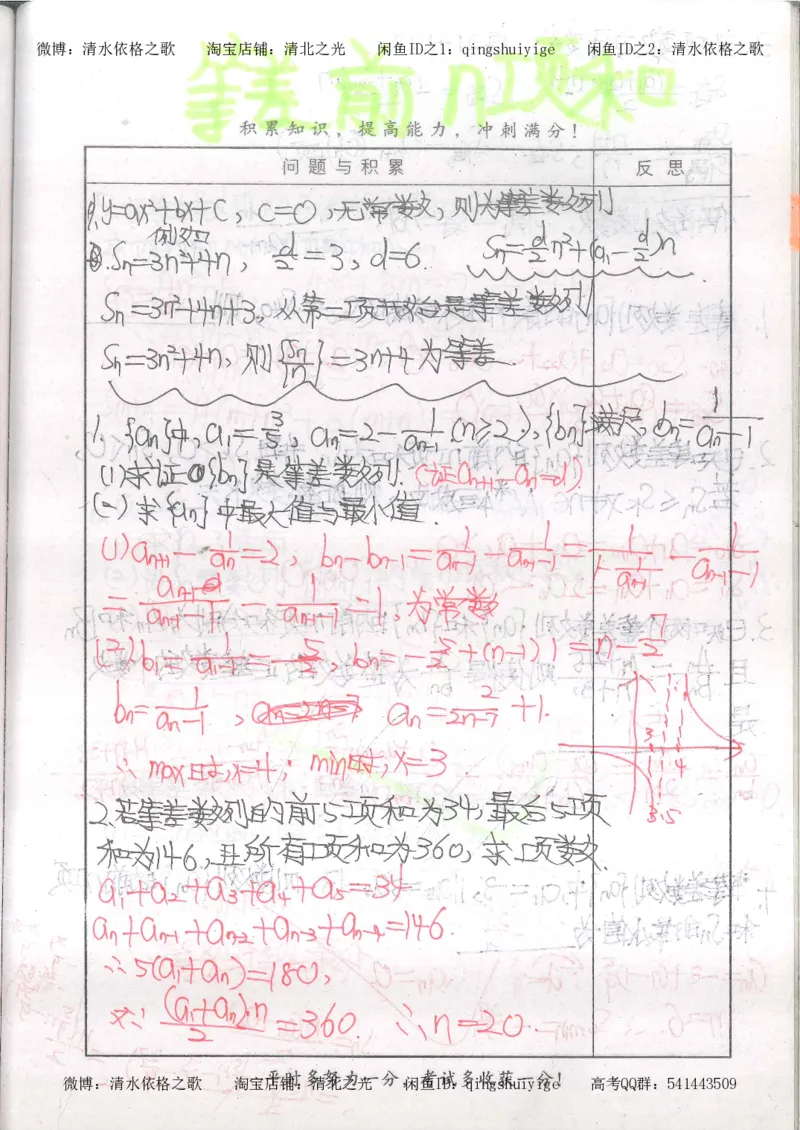 微博：清水依格之歌 淘宝店铺：清北之光 闲鱼ID之1：qingshuiyige 闲鱼ID之2：清水依格之歌
等差前n项和
积累知识，提高能力，冲刺满分！
问题与积累 反思
y=ax²+bx+c，c=0，无常数，则为等差数列
例如
Sn=3n²+4n，d/2=3，d=6. Sn=d/2n²+(a₁-d/2)n
Sn=3n²+4n+3，从第二项开始是等差数列
Sn=3n²+4n，则{Sn/n}=3n+4为等差
1. {an}中，a₁=3/5，an=2-1/an-1(n≥2)，{bn}满足，bn=1/an-1
(1)求证{bn}是等差数列.(证an+1-an=d)
(二)求{an}中最大值与最小值.
(1)an+1-1/an=2，bn-bn-1=1/an-1-1/an-1-1=1/1-1/an-1-1/an-1-1
=an-1/an-1-1-1/an-1-1=1，为常数
(2)b₁=1/a₁-1=-5/2，bn=-5/2+(n-1)1=n-7/2
bn=1/an-1， an=2/2n-7+1.
∴max时，x=4；min时，x=3
3 4
3.5
2.若等差数列的前5项和为34，最后5项
和为146，且所有项和为360，求项数.
a₁+a₂+a₃+a₄+a₅=34
an+an-1+an-2+an-3+an-4=146.
∴5(a₁+an)=180，
又∵(a₁+an)·n/2=360. ∴n=20.
平时多努力一分，考试多收获一分！
微博：清水依格之歌 淘宝店铺：清北之光 闲鱼ID：qingshuiyige 高考QQ群：541443509